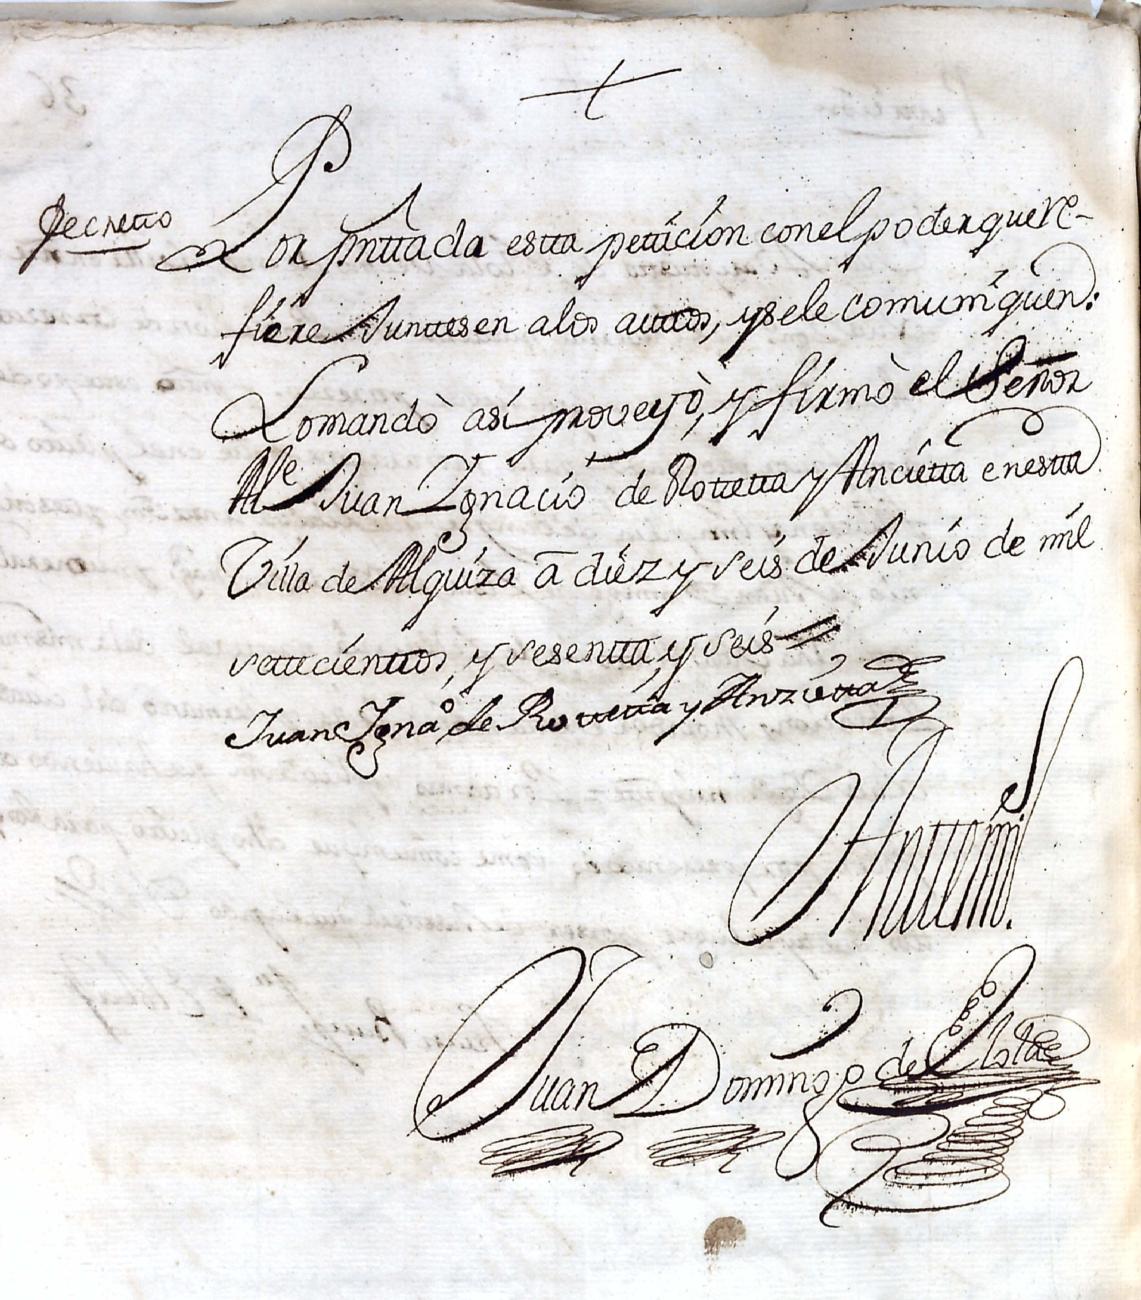 Decretto
Por pnttada estta petticion con el poder que re-
fiere Junttesen a los auttos, y se le comuniquen:
Lo mandò asi proveyò, y firmò el Señor
Al.e Juan Ignacio de Rottetta y Ancietta en estta
Villa de Alquiza a diez y seis de Junio de mil
settecienttos, y sesentta, y seis
Juan Igna.o de Rottetta y Anzietta
Anttemi.
Juan Domingo de